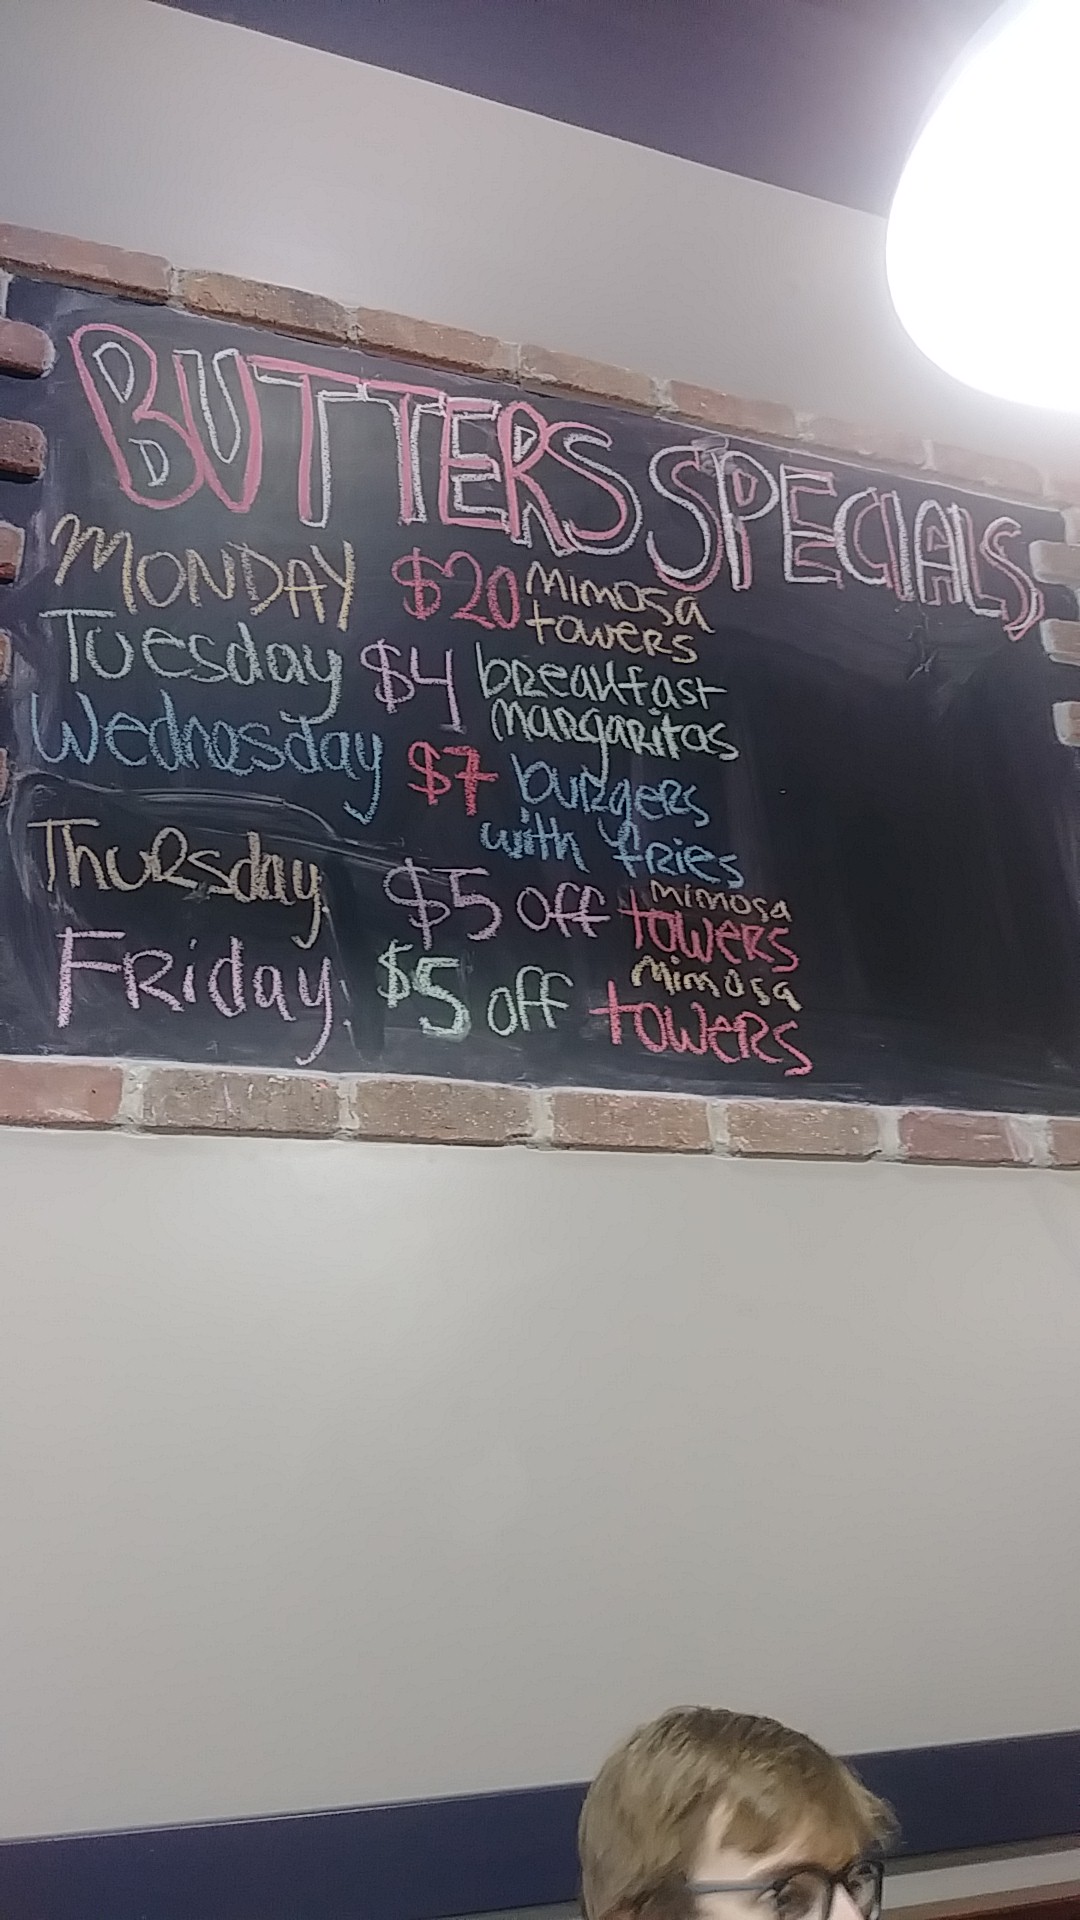 BUTTERS SPECIALS
MONDAY $20 Mimosa
towers
Tuesday $4 breakfast
Margaritas
Wednesday $7 burgers
with fries
Thursday $5 off Mimosa
towers
Friday $5 off Mimosa
towers